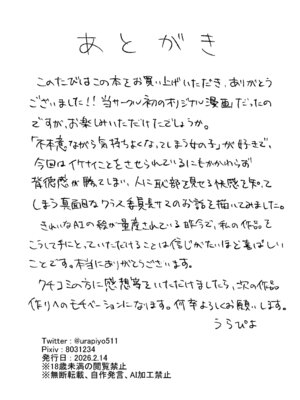 あとがき
このたびはこの本をお買い上げいただき、ありがとう
ございました!!当サークル初のオリジナル漫画だったの
ですが、お楽しみいただけたでしょうか。
「不本意ながら気持ちよくなってしまう女の子」が好きで、
今回はイケナイことをさせられているにもかかわらず
背徳感が勝てしまい、人に恥部を見せる快感を知って
しまう真面目なクラス委員長サキのお話を描いてみました。
きれいなAIの絵が量産されている昨今で、私の作品を
こうして手にとっていただけることは信じがたいほど喜ばしい
ことです。本当にありがとうございます。
クチコミの方に感想等をいただけましたら、次の作品
作りへのモチベーションになります。何卒よろしくお願いします。
うらぴよ
Twitter : @urapiyo511
Pixiv : 8031234
発行日 : 2026.2.14
※18歳未満の閲覧禁止
※無断転載、自作発言、AI加工禁止